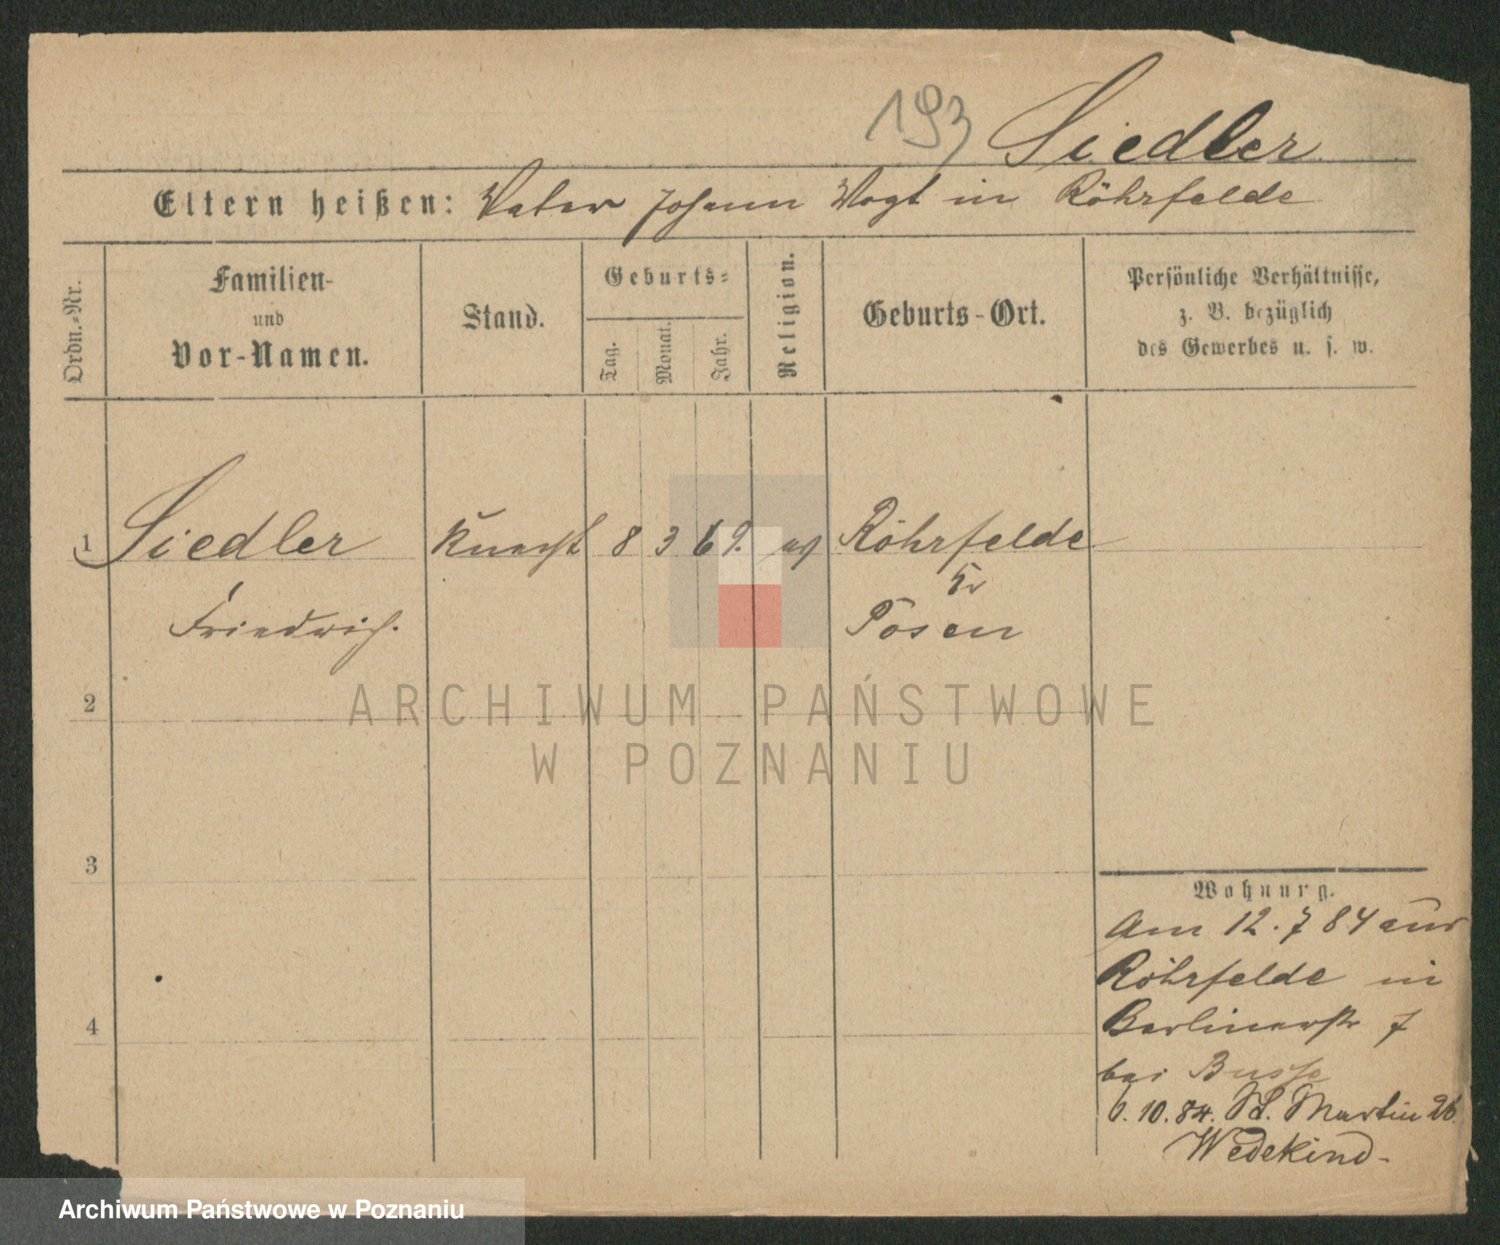 193 Siedler
Eltern heißen: Vater Johann Vogt in Röhrfelde
Ordn.-Nr.
Familien-
und
Vor-Namen.
Stand.
Geburts-
Tag.
Monat.
Jahr.
Religion.
Geburts-Ort.
Persönliche Verhältnisse,
z. B. bezüglich
des Gewerbes u. s. w.
1 Siedler Knecht 8 3 69. ev Röhrfelde
Kr
Friedrich. Posen
2
3
4
Wohnung.
Am 12.7 84 aus
Röhrfelde in
Berlinerstr 7
bei Busse
6.10.84. St. Martin 26.
Wedekind-
ARCHIWUM PAŃSTWOWE
W POZNANIU
Archiwum Państwowe w Poznaniu